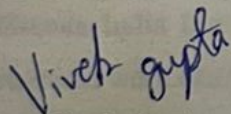 Vivek gupta